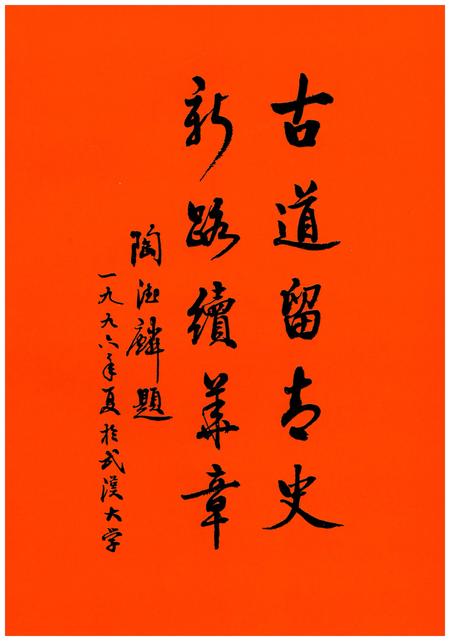 古道留青史
新路續華章
陶德麟題
一九九六年夏於武漢大学